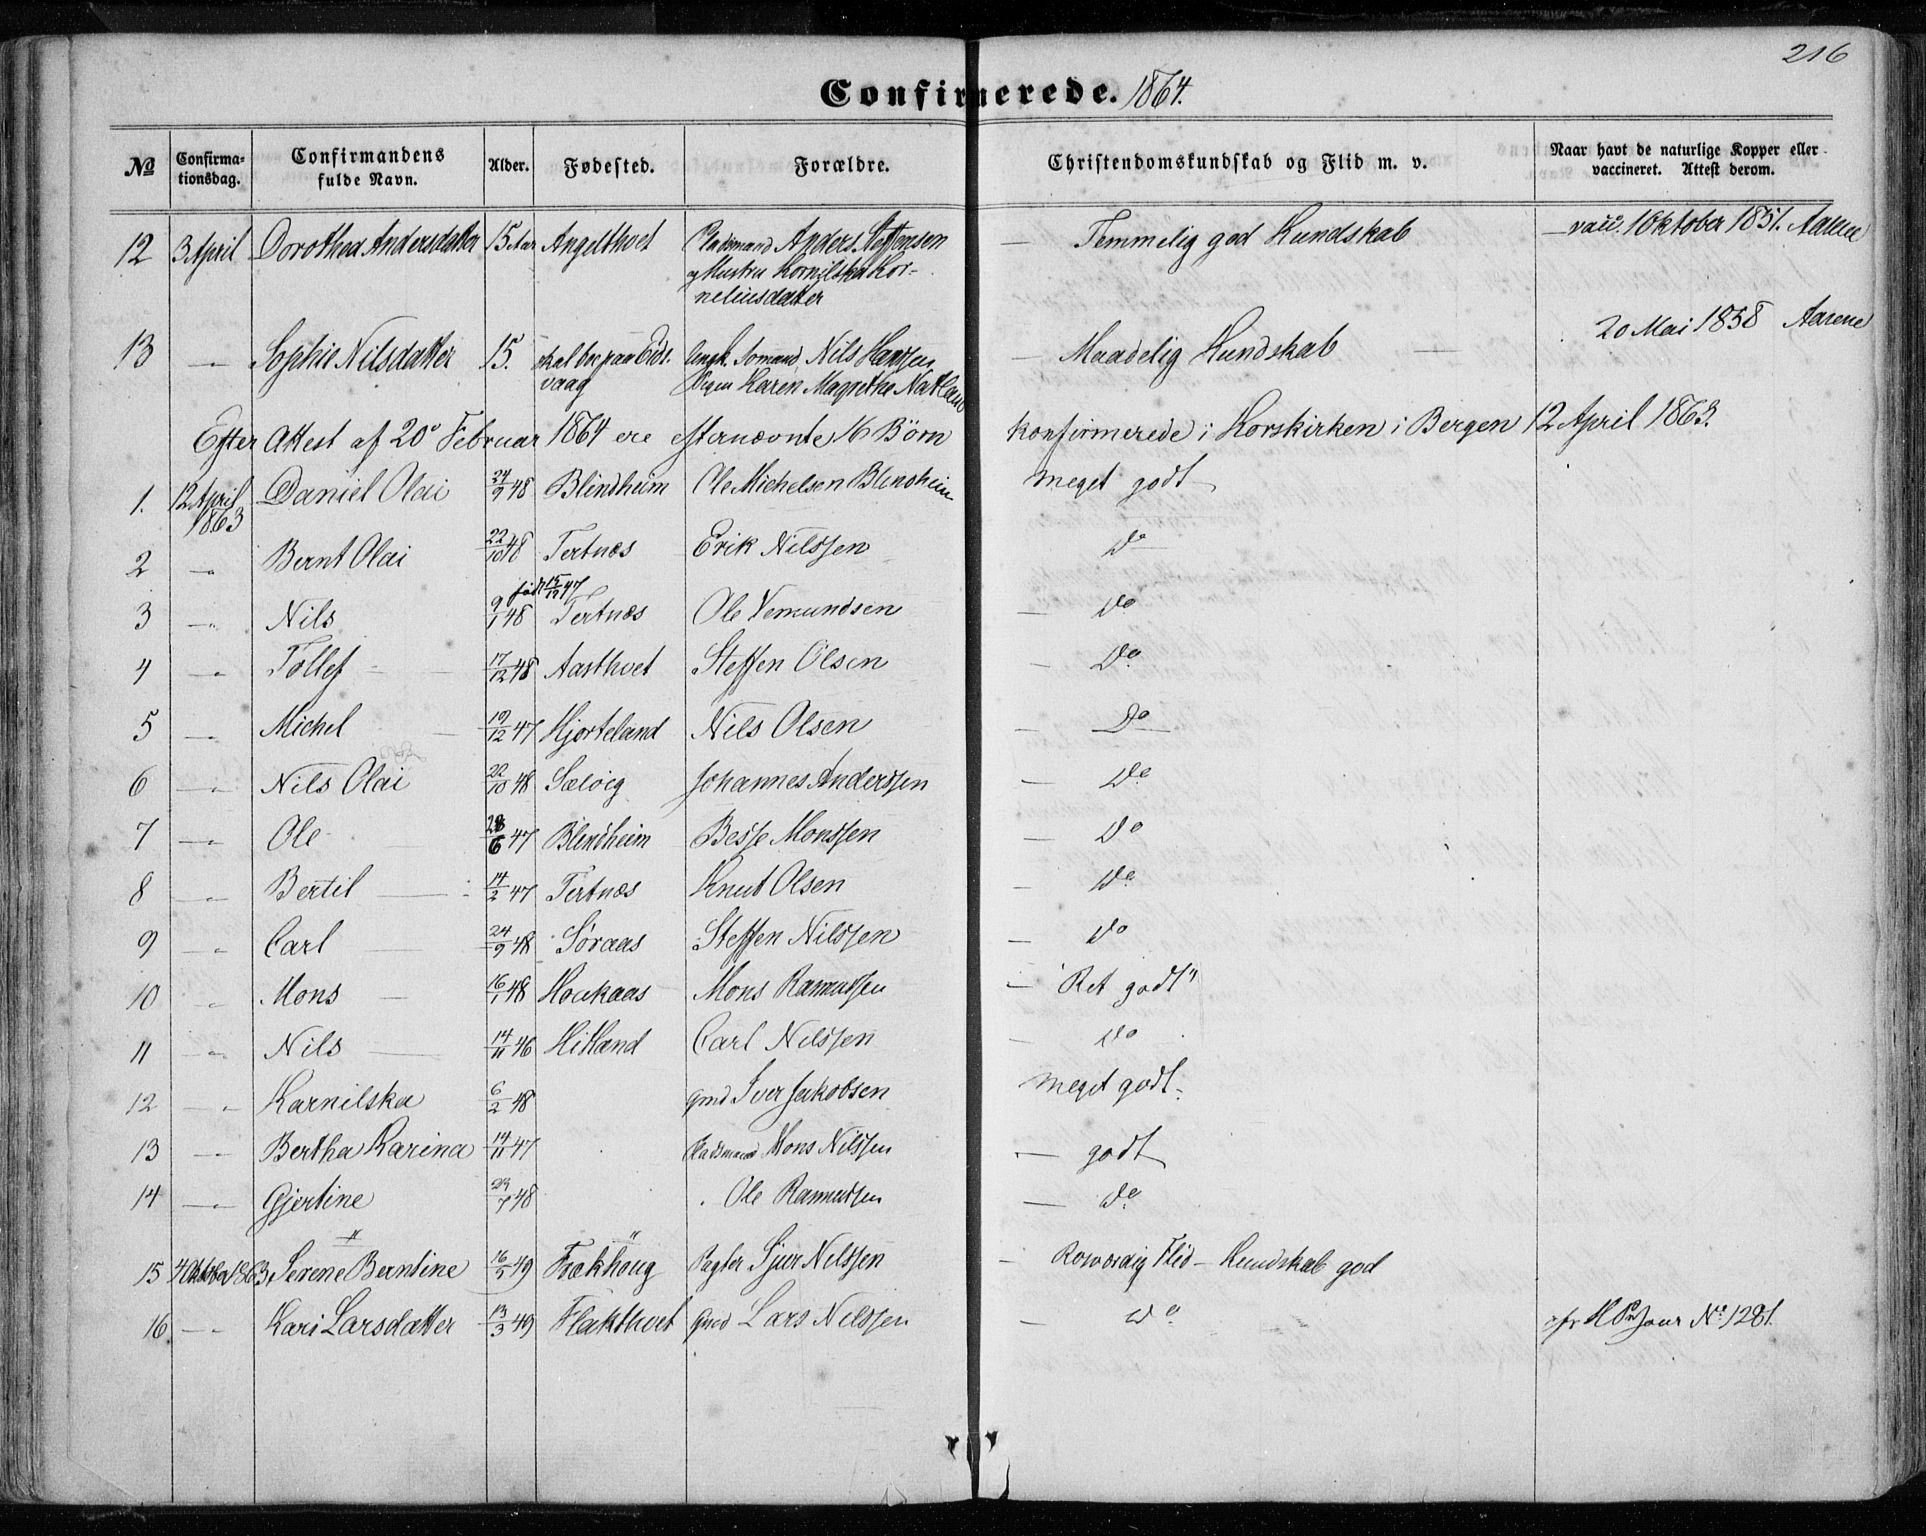 216
Confirmerede. 1864.
№ Confirma-tionsdag. Confirmandens fulde Navn. Alder. Fødested. Forældre. Christendomskundskab og Flid m. v. Naar havt de naturlige Kopper eller vaccineret. Attest derom.
12 3 April Dorothea Andersdatter 15 Aar Angelthvet Pladsmand Anders Steffensen — Temmelig god Kundskab — vacc. 1 Oktober 1851. Aasene
og Hustru Kornilska Kor-
neliusdatter
13 — Sophie Nilsdatter 15. skal bo paa Eids-vaag Ungk. Sømand Nils Hanssen — Maadelig Kundskab — 20 Mai 1858 Aasene
Pigen Karen Magrethe Natland
Efter Attest af 20de Februar 1864 ere efternævnte 16 Börn konfirmerede i Korskirken i Bergen 12 April 1863.
1. 12 April 1863 Daniel Olai 24/9 48 Blindheim Ole Michelsen Blindheim meget godt
2 — Bernt Olai 22/10 48 Tertnæs Erik Nilssen Do
født 15/12 47
3 — Nils 9/1 48 Tertnæs Ole Vemundsen — Do
4 — Tollef 17/12 48 Aasthvet Steffen Olsen — Do
5 — Michel 19/12 47 Hjorteland Nils Olsen — Do
6 — Nils Olai 22/10 48 Sælöig Johannes Anderssen — Do
7 — Ole 28/6 47 Blindheim Besse Monssen — Do
8 — Bertil 14/2 47 Tertnæs Knut Olsen — Do
9 — Carl 24/9 48 Söraas Steffen Nilssen — Do
10 — Mons 16/1 48 Houkaas Mons Rasmussen — "Ret godt"
11 — Nils 14/11 46 Hitland Carl Nilssen — Do
12 — Karnilska 6/2 48 Gmd Iver Jakobsen meget godt
13 — Bertha Karina 14/11 47 Pladsmand Mons Nilssen — godt
14 — Gjertine 29/7 48 Ole Rasmussen — Do
15 4 Oktober 1863 Serene Berntine 16/5 49 Frækhöug Pagter Sjur Nilssen — Rosværdig Flid – Kundskab god
16. — Kari Larsdatter 13/3 49 Flakthvet Gmd Lars Nilssen — Do cfr Jour No 1281.